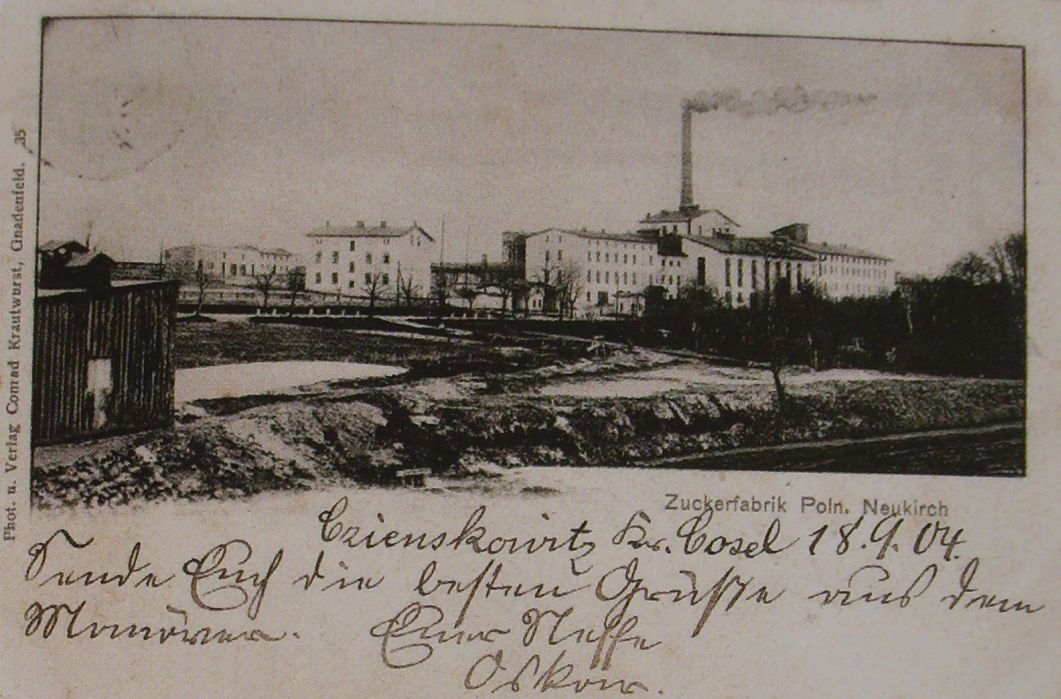 Phot. u. Verlag Conrad Krautwurst, Gnadenfeld. 35
Zuckerfabrik Poln. Neukirch
Czienskowitz Kr. Cosel 18.9.04.
Sende Euch die besten Grüße aus dem
Manöver. Euer Neffe
Oskar.